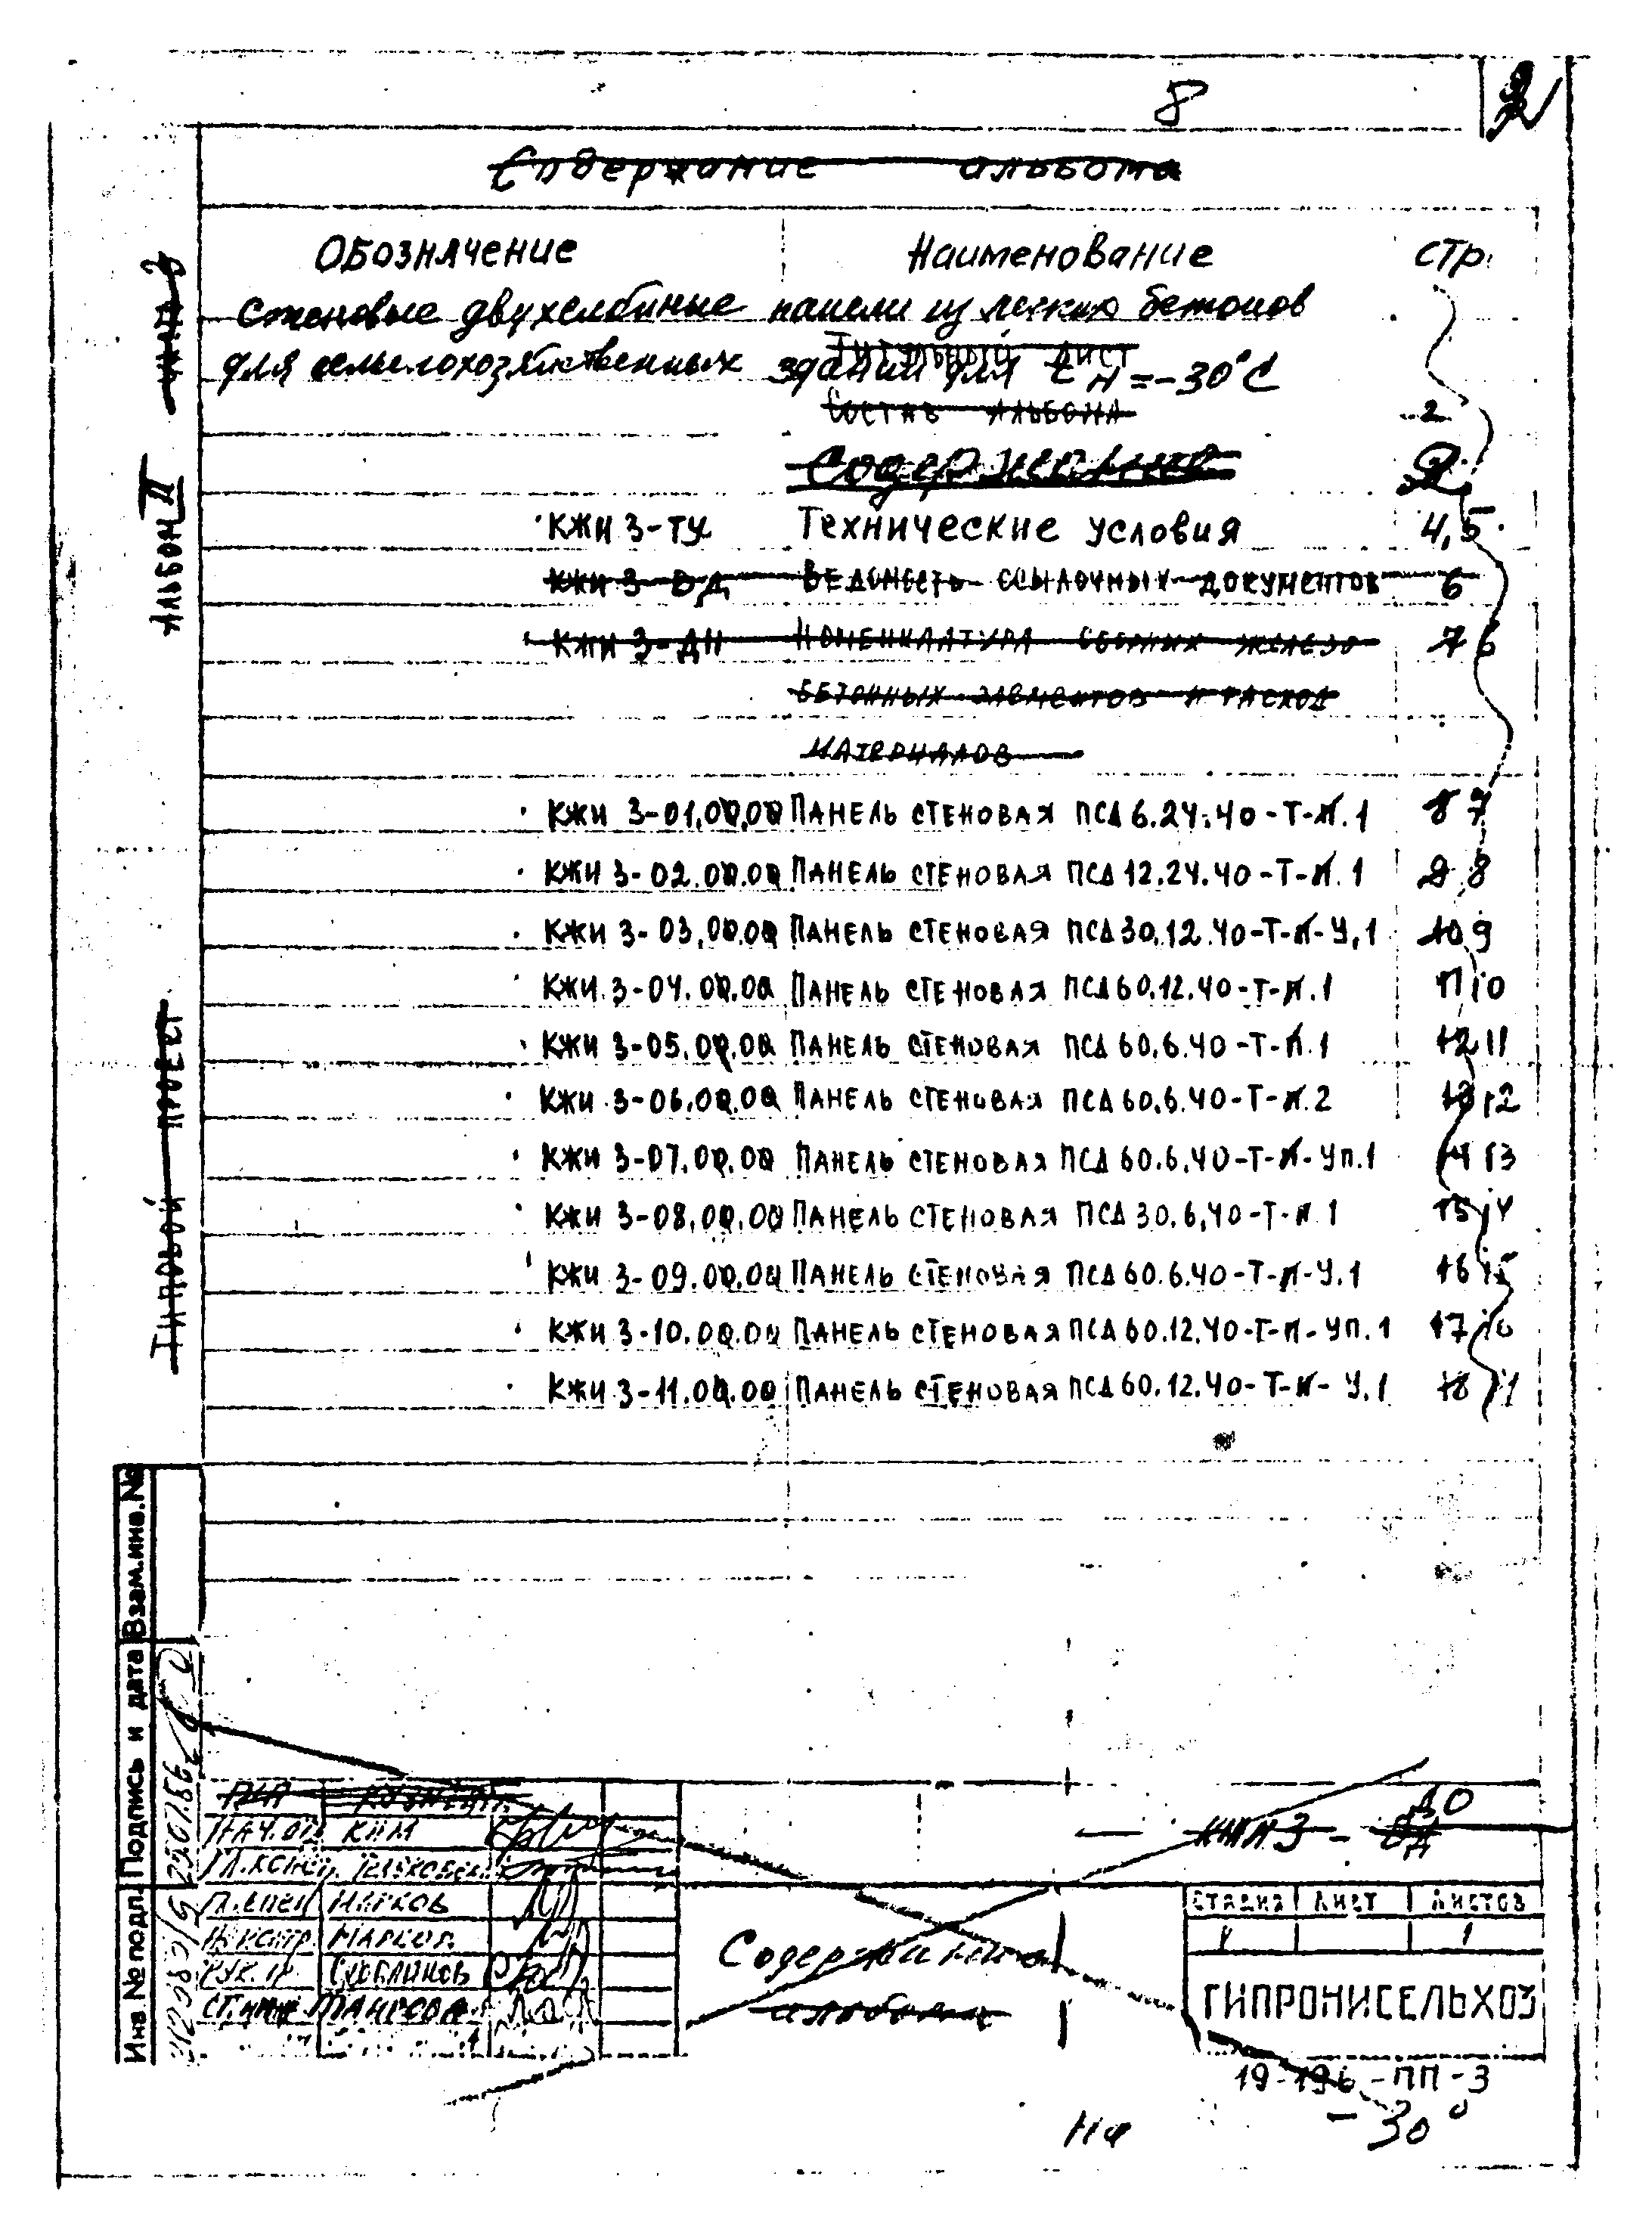 8
Содержание альбома
Обозначение Наименование стр.
Стеновые двухслойные панели из легких бетонов
Титульный лист
для сельскохозяйственных зданий для tн = -30°С
Состав альбома 2
Содержание
КЖИ 3-ТУ Технические условия 4,5
КЖИ 3-ВД Ведомость ссылочных документов 6
КЖИ 3-ДН Номенклатура сборных железо 7 6
бетонных элементов и расход
материалов
КЖИ 3-01.00.00 Панель стеновая ПСД 6.24.40-Т-П.1 8 7
КЖИ 3-02.00.00 Панель стеновая ПСД 12.24.40-Т-П.1 9 8
КЖИ 3-03.00.00 Панель стеновая ПСД 30.12.40-Т-П-У.1 10 9
КЖИ 3-04.00.00 Панель стеновая ПСД 60.12.40-Т-П.1 11 10
КЖИ 3-05.00.00 Панель стеновая ПСД 60.6.40-Т-П.1 12 11
КЖИ 3-06.00.00 Панель стеновая ПСД 60.6.40-Т-П.2 13 12
КЖИ 3-07.00.00 Панель стеновая ПСД 60.6.40-Т-П-Уп.1 14 13
КЖИ 3-08.00.00 Панель стеновая ПСД 30.6.40-Т-П.1 15 14
КЖИ 3-09.00.00 Панель стеновая ПСД 60.6.40-Т-П-У.1 16 15
КЖИ 3-10.00.00 Панель стеновая ПСД 60.12.40-Т-П-Уп.1 17 16
КЖИ 3-11.00.00 Панель стеновая ПСД 60.12.40-Т-П-У.1 18
Типовой проект
Альбом II
Взам.инв.№
Подпись и дата
Инв.№ подл.
ГИП
Нач.отд. Ким
Гл.конст.
Гл.спец Марков
Н.контр. Марков
Рук.гр.
Ст.инж
КЖИ 3 - ДО
Содержание
альбома
Стадия Лист Листов
1
ГИПРОНИСЕЛЬХОЗ
19-196-ПП-3
-30°